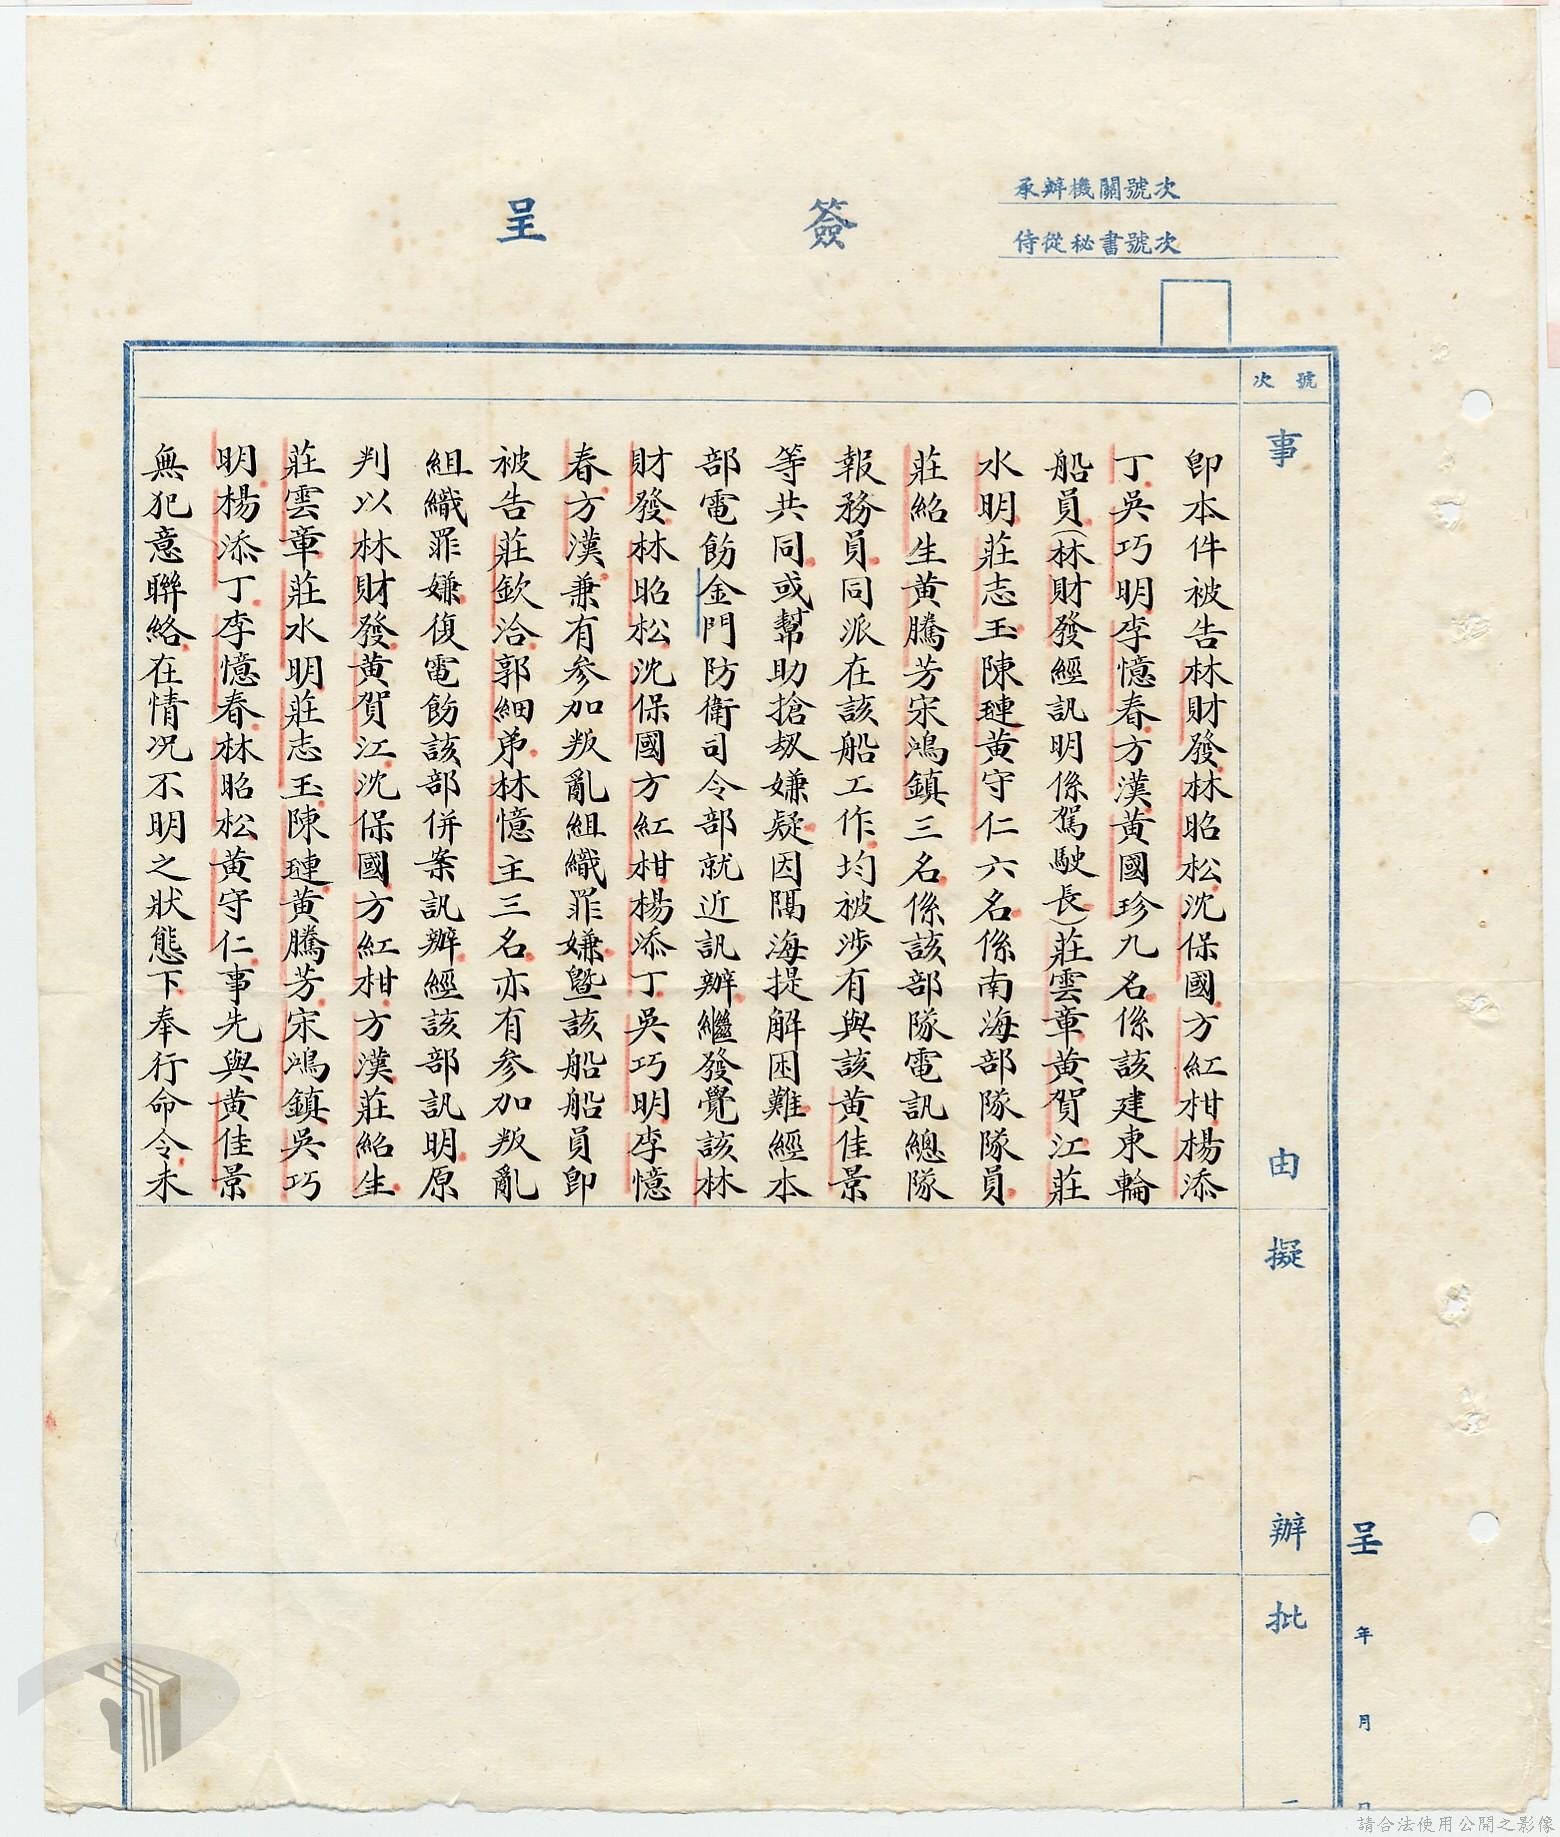 承辦機關號次
侍從秘書號次
簽呈
號次
事由
擬辦
批
呈 年 月 日
即本件被告林財發林昭松沈保國方紅柑楊添
丁吳巧明李憶春方漢黃國珍九名係該建東輪
船員(林財發經訊明係駕駛長)莊雲章黃賀江莊
水明莊志玉陳璉黃守仁六名係南海部隊隊員
莊紹生黃騰芳宋鴻鎮三名係該部隊電訊總隊
報務員同派在該船工作均被涉有與該黃佳景
等共同或幫助搶刼嫌疑因隔海提解困難經本
部電飭金門防衛司令部就近訊辦繼發覺該林
財發林昭松沈保國方紅柑楊添丁吳巧明李憶
春方漢兼有參加叛亂組織罪嫌暨該船船員即
被告莊欽洽郭細弟林憶主三名亦有參加叛亂
組織罪嫌復電飭該部併案訊辦經該部訊明原
判以林財發黃賀江沈保國方紅柑方漢莊紹生
莊雲章莊水明莊志玉陳璉黃騰芳宋鴻鎮吳巧
明楊添丁李憶春林昭松黃守仁事先與黃佳景
無犯意聯絡在情况不明之狀態下奉行命令未
請合法使用公開之影像